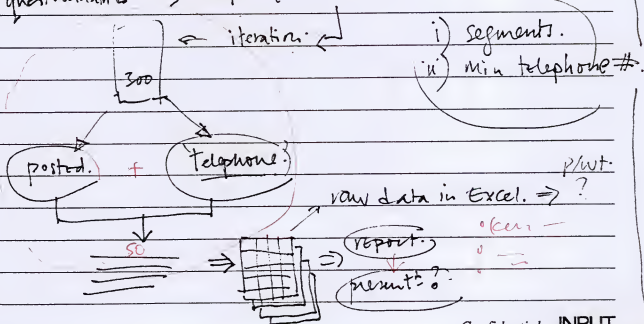 questionnaires
iteration.
i) segments.
ii) min telephone #.
300
posted. + telephone.
p/wt.
raw data in Excel. ⇒ ?
50
report.
present⁼ ?
INPUT